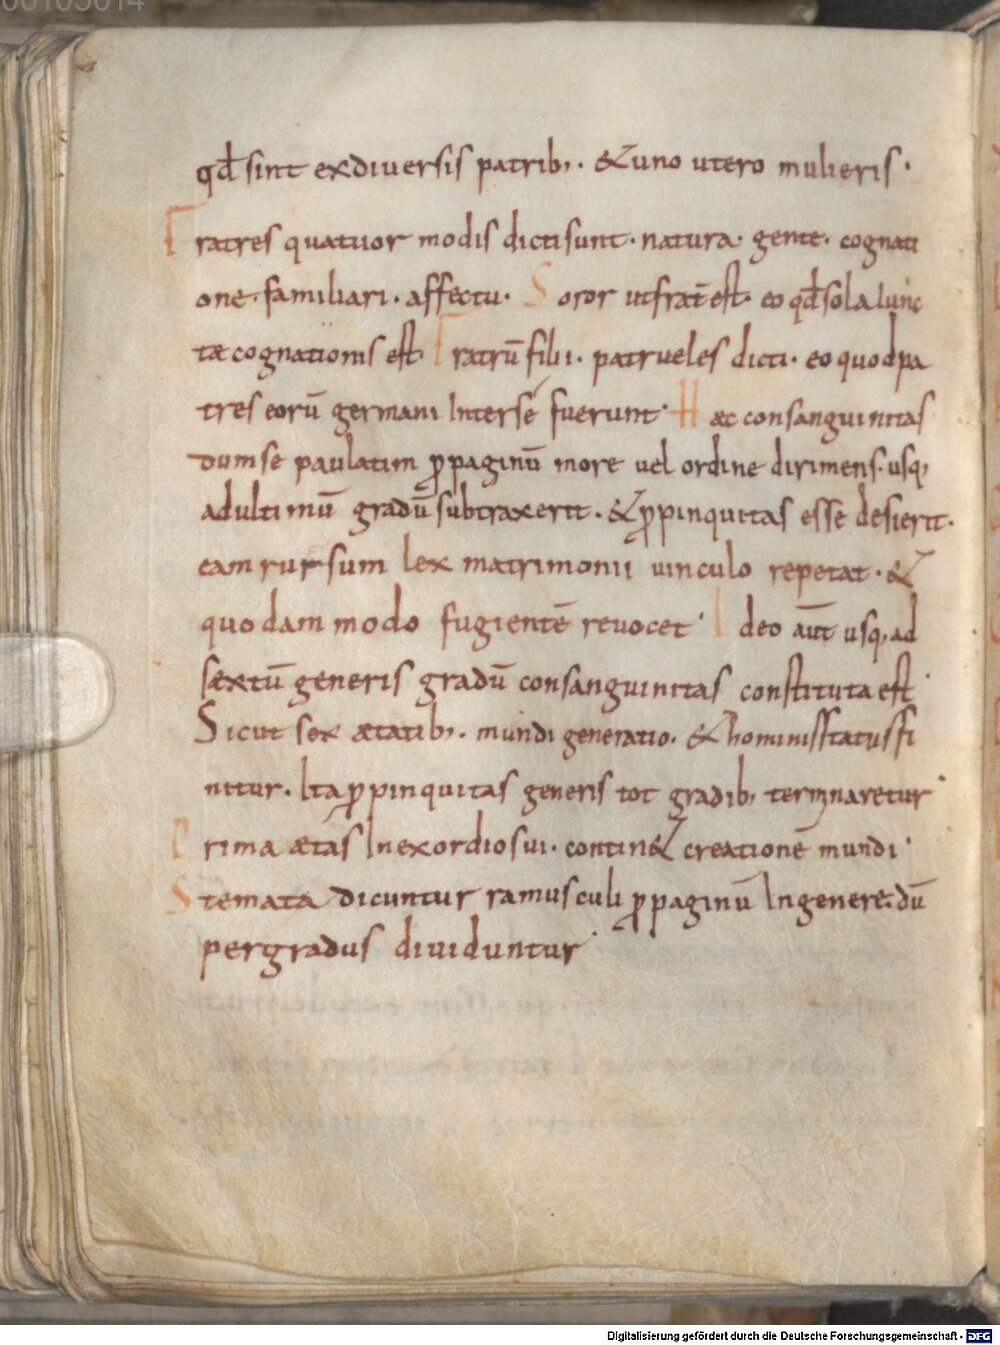 00105014
qđ sint ex diuersis patrib; · & uno utero mulieris ·
Fratres quatuor modis dicti sunt · natura · gente · cognati
one · familiari · affectu · Soror ut frat̄ est · eo qđ sola iunc
tæ cognationis est Fratrū filii · patrueles dicti · eo quod pa
tres eorū germani inter sé fuerunt · Hæc consanguinitas
dum se paulatim ꝓpaginū more uel ordine dirimens · usq;
ad ultimū gradū subtraxerit · & ꝓpinquitas esse desierit ·
eam rursum lex matrimonii uinculo repetat · &
quodam modo fugientē reuocet · Ideo aūt usq; ad
sextū generis gradū consanguinitas constituta est ·
Sicut sex ætatib; · mundi generatio · & hominis status fi
nitur · Ita ꝓpinquitas generis tot gradib; terminaretur ·
Prima ætas in exordio sui · contin& creationē mundi ·
Stemata dicuntur ramusculi ꝓpaginū in genere · dū
per gradus diuiduntur ·
Digitalisierung gefördert durch die Deutsche Forschungsgemeinschaft - DFG